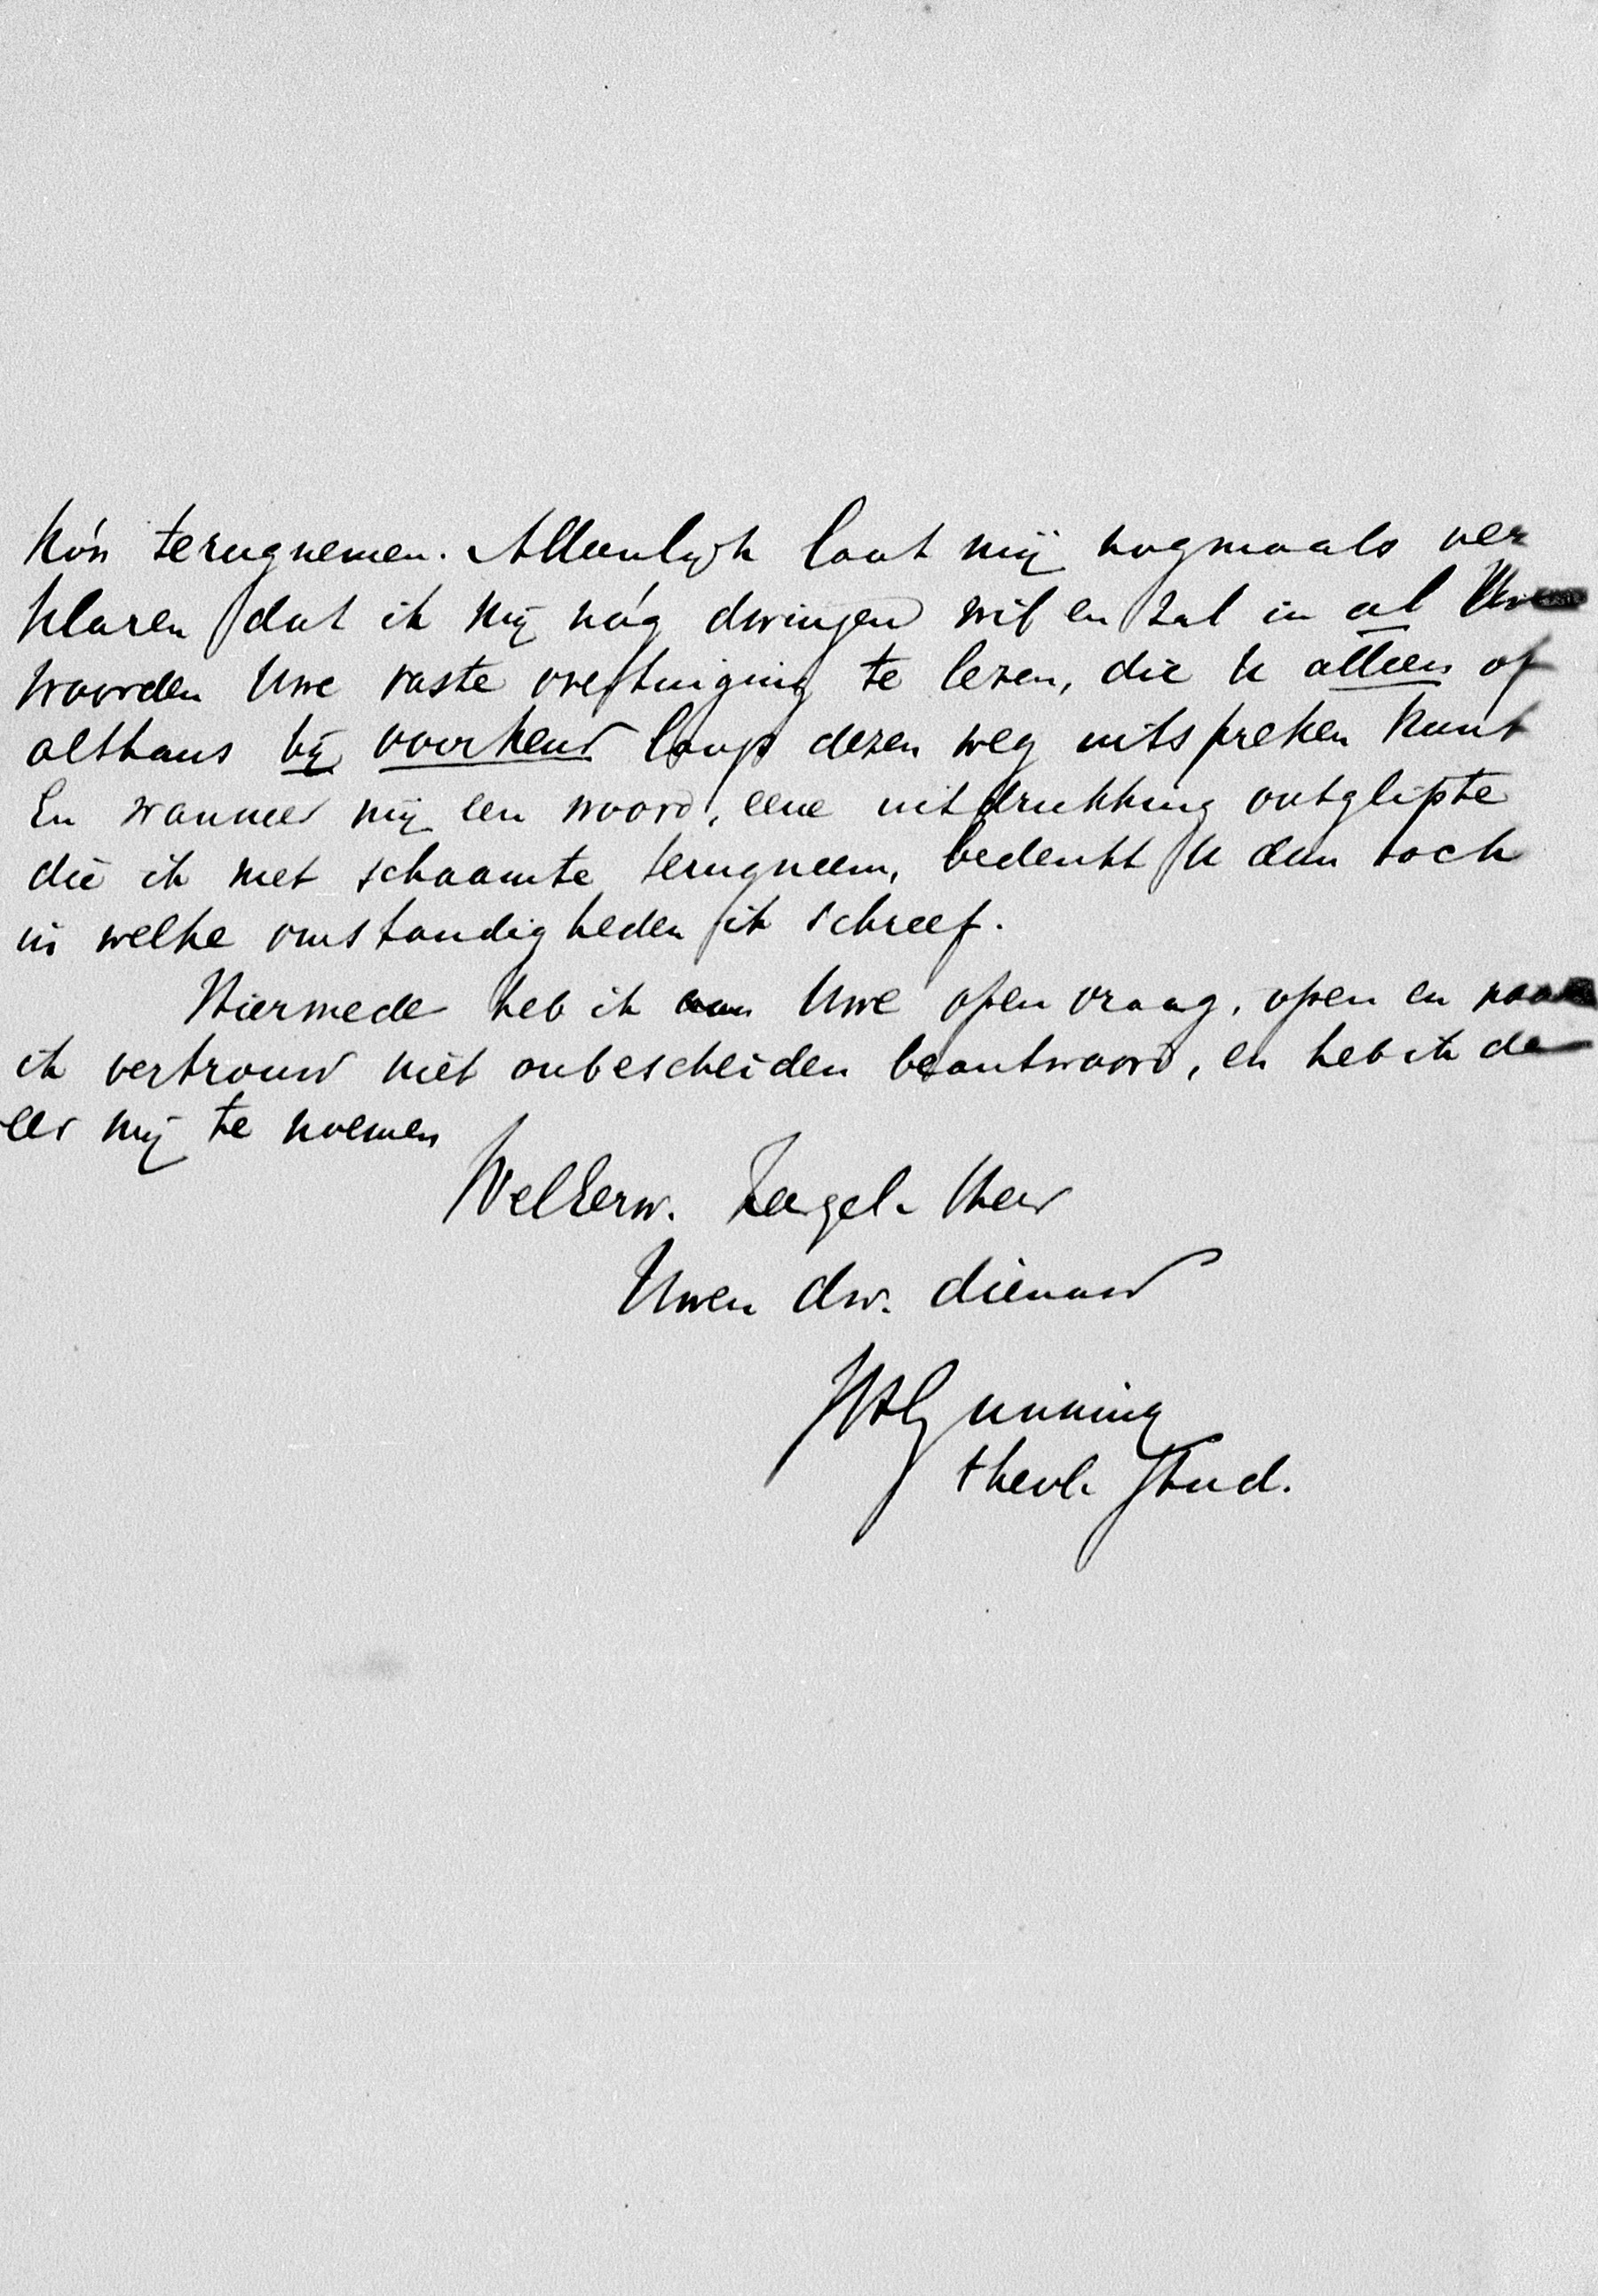 kón terugnemen. Alleenlijk laat mij nogmaals ver
klaren dat ik mij nóg dwingen wil en zal in al Uwe
woorden Uwe vaste overtuiging te lezen, die U alleen of
althans bij voorkeur langs dezen weg uitspreken kunt
En wanneer mij een woord, eene uitdrukking ontglipte
die ik met schaamte terugneem, bedenkt U dan toch
in welke omstandigheden ik schreef.
Hiermede heb ik aan Uwe open vraag, open en naar
ik vertrouw niet onbescheiden beantwoord, en heb ik de
eer mij te noemen
WelEerw. Zeergel. Heer
Uwen dw. dienaar
JHGunning
theol. Stud.